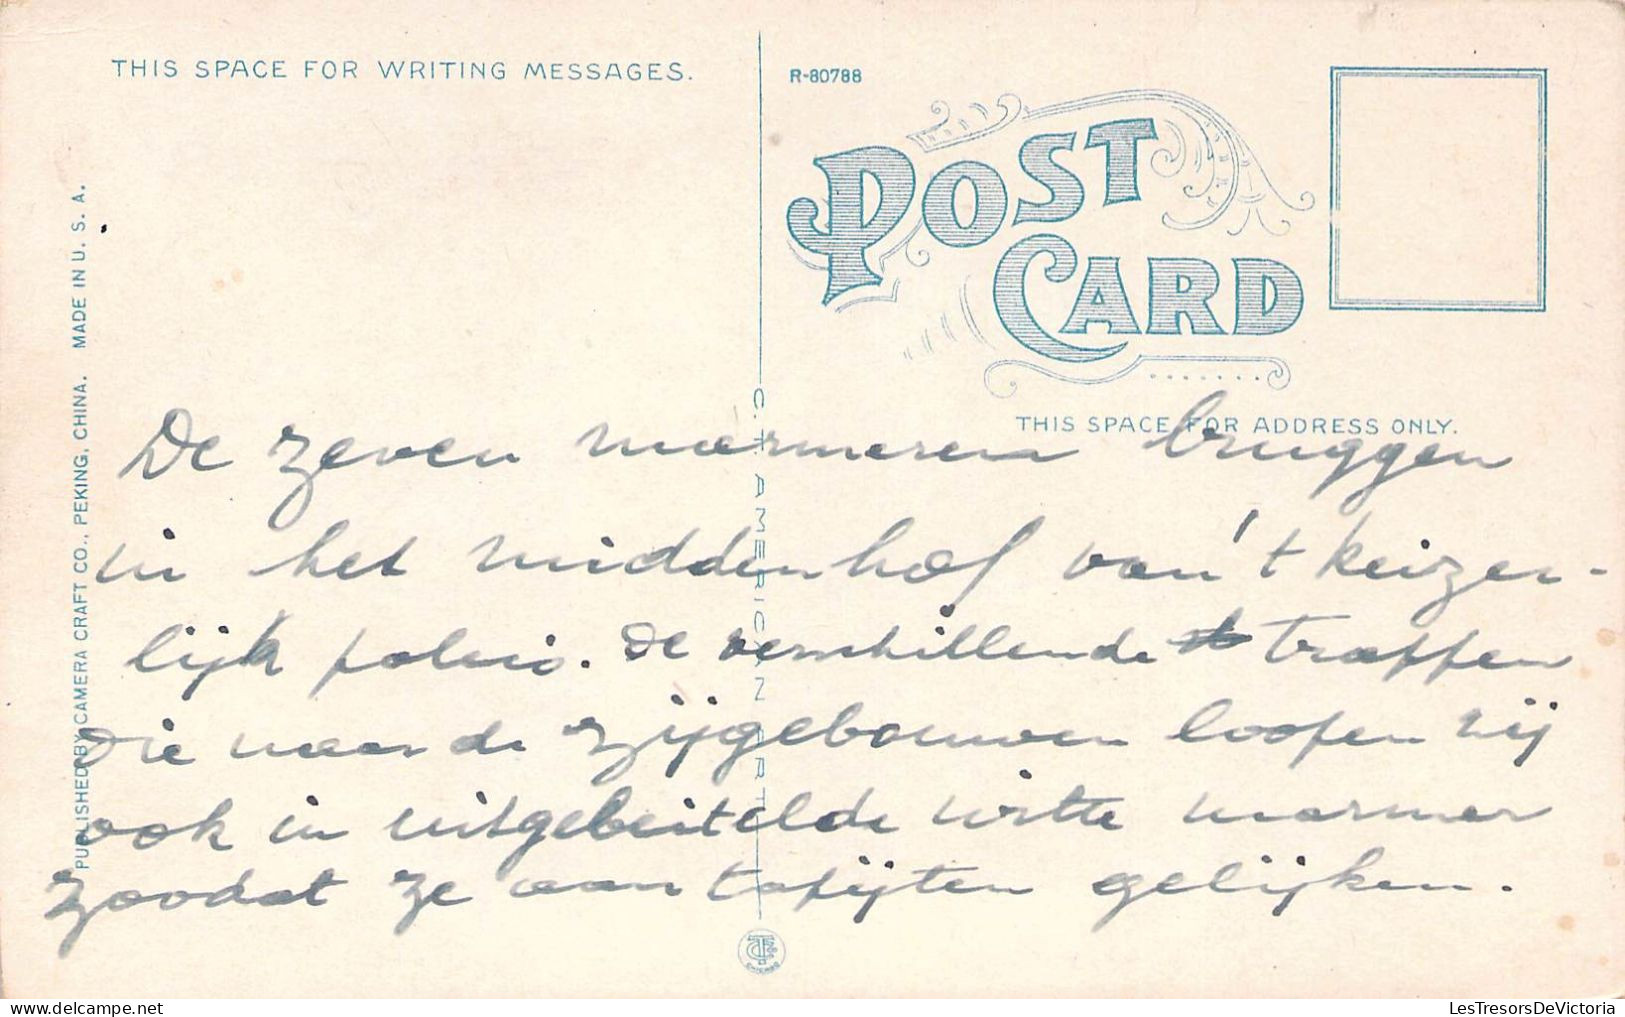 THIS SPACE FOR WRITING MESSAGES.
R-80788
POST
CARD
THIS SPACE FOR ADDRESS ONLY.
PUBLISHED BY CAMERA CRAFT CO., PEKING, CHINA. MADE IN U. S. A.
C. T. AMERICAN ART
De zeven marmeren bruggen
in het middenhof van 't keizer-
lijk paleis. De verschillende trappen
die naar de zijgebouwen loopen zij
ook in uitgebeitelde witte marmer
zoodat ze aan tapijten gelijken.
CHICAGO
LesTresorsDeVictoria